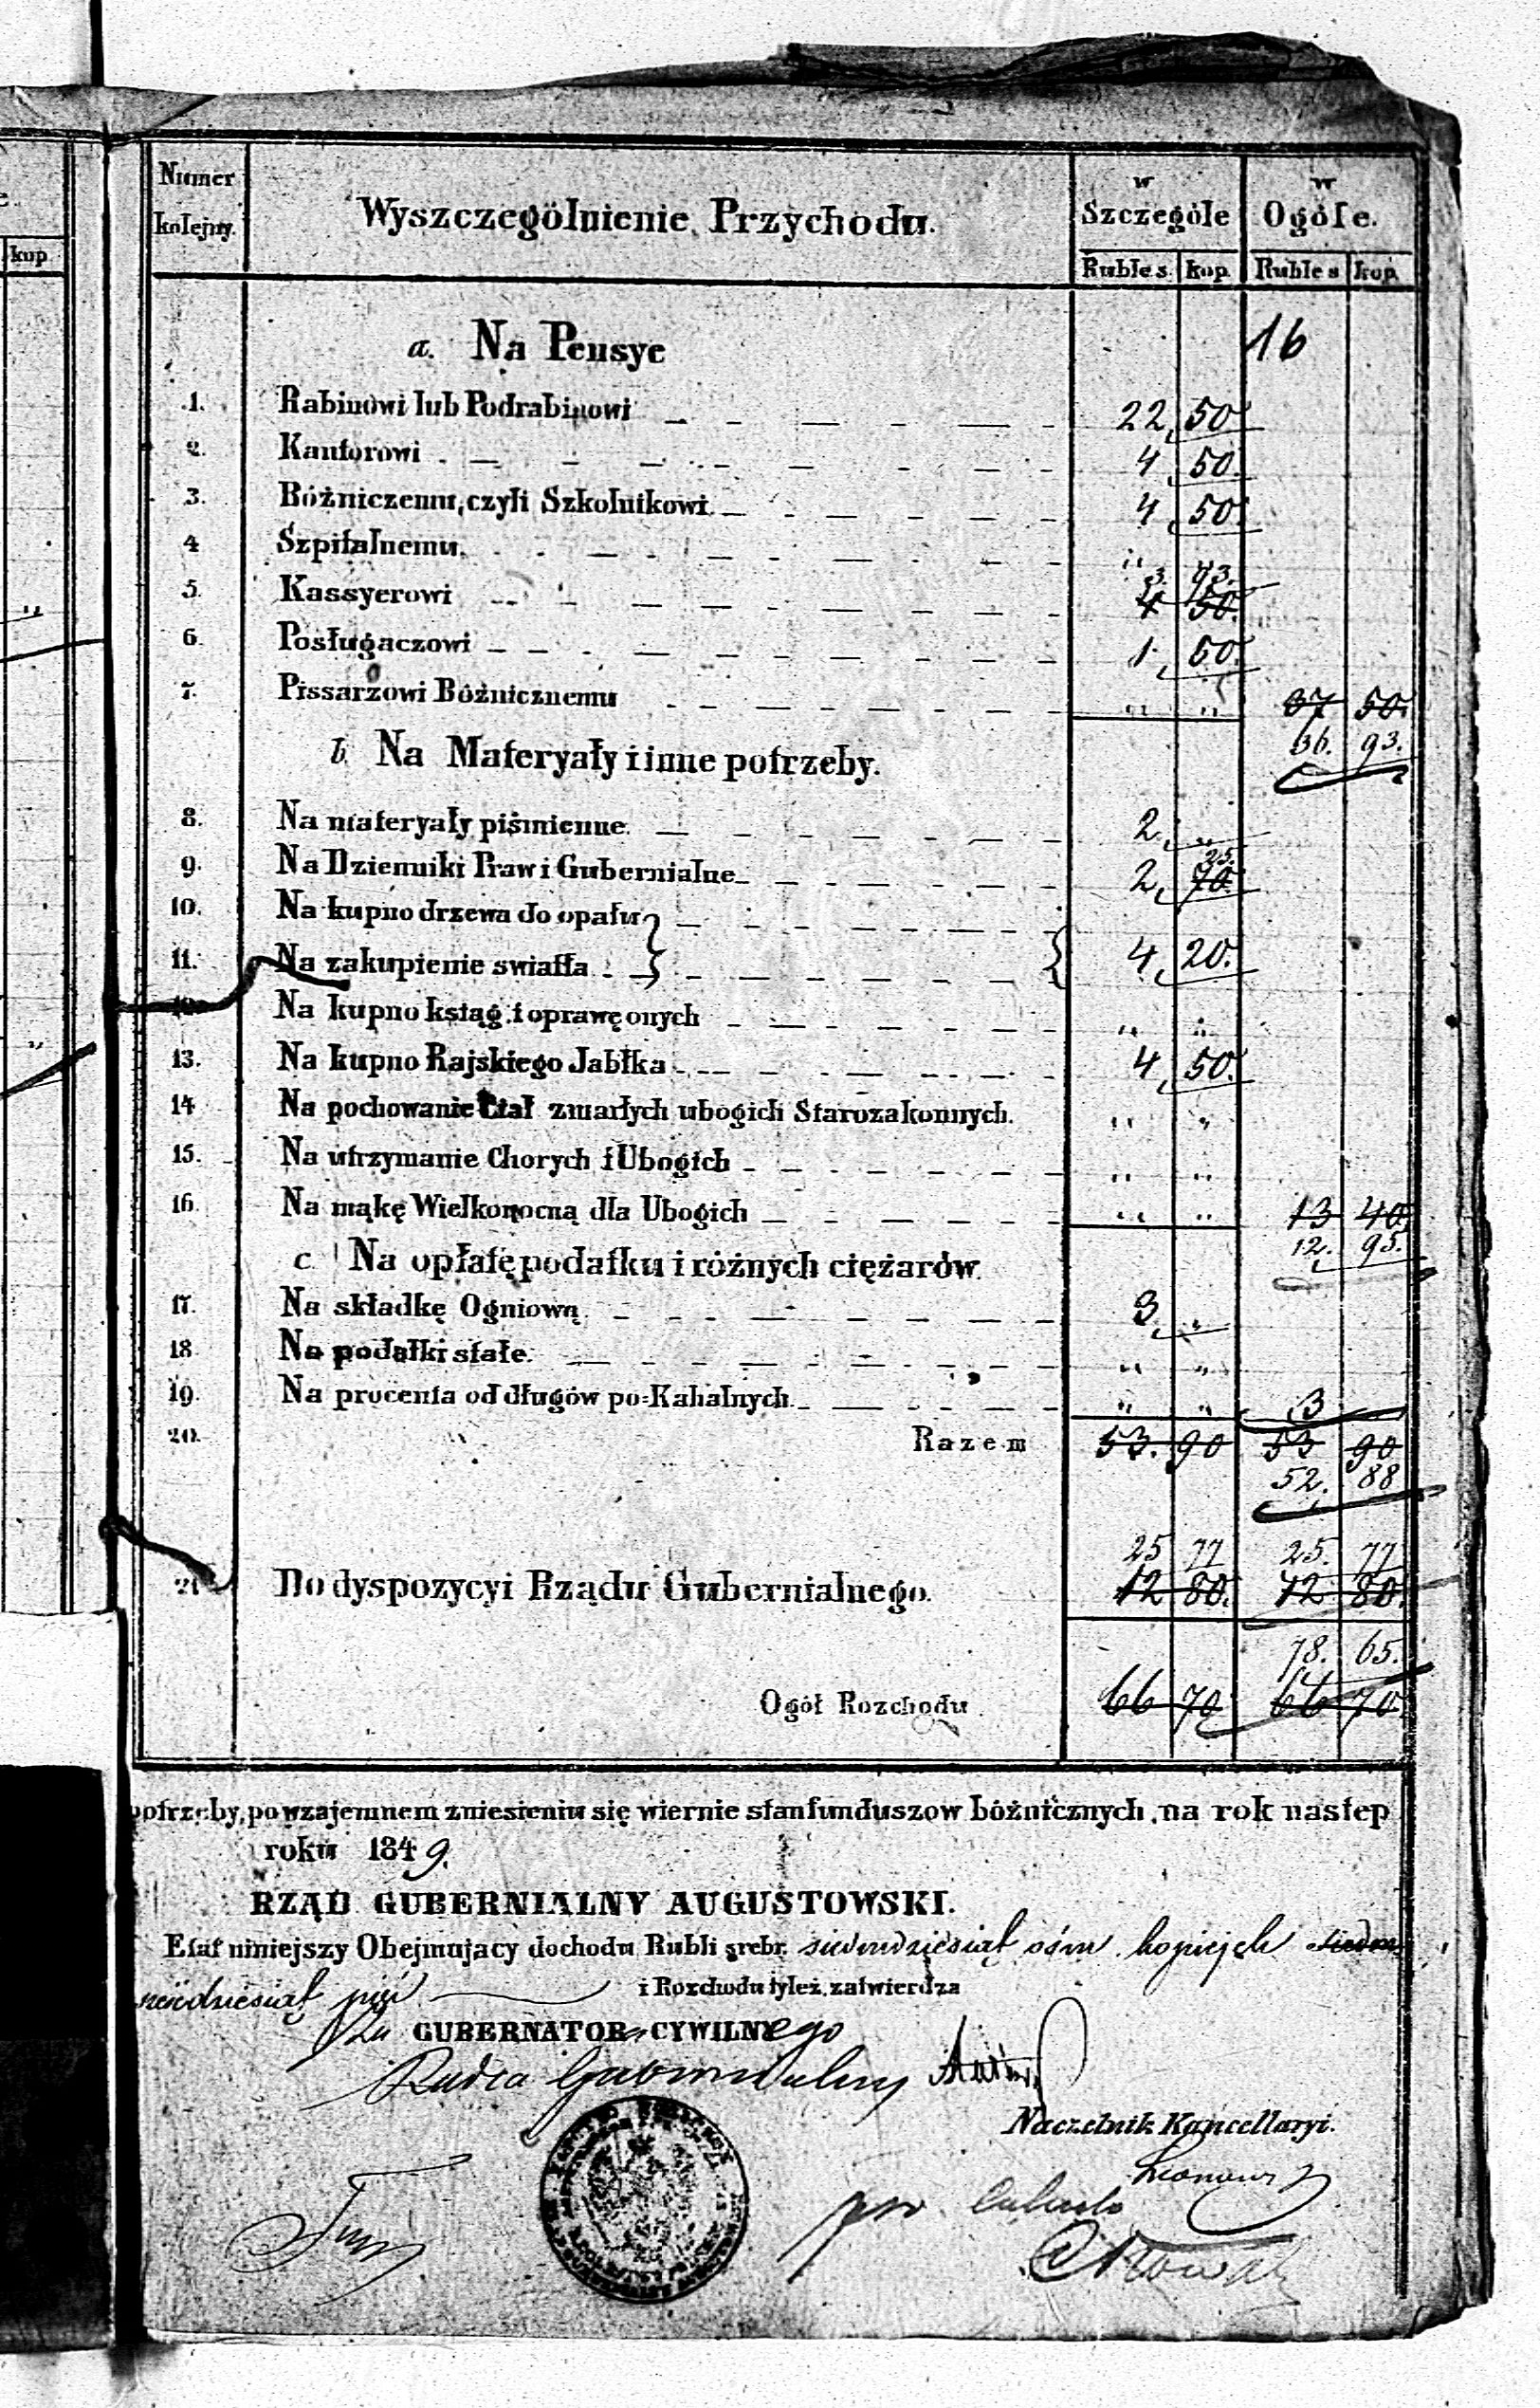 Numer kolejny. Wyszczególnienie Przychodu. w Szczególe w Ogóle.
kup Rubles. kop. Rubles kop.
a. Na Pensye 16
1. Rabinowi lub Podrabinowi 22, 50
2. Kantorowi 4 50.
3. Bóżniczemu, czyli Szkolnikowi 4 50.
4 Szpitalnemu. " "
3. 93.
5. Kassyerowi 4 50.
6. Posługaczowi 1. 50.
7. Pissarzowi Bóżnicznemu " " 37 50.
36. 93.
b. Na Materyały i inne potrzeby.
8. Na materyały piśmienne. 2. "
25.
9. Na Dzienniki Praw i Gubernialne 2, 70
10. Na kupno drzewa do opału
11. Na zakupienie swiatła 4, 20.
12. Na kupno ksiąg i oprawę onych " "
13. Na kupno Rajskiego Jabłka 4 50.
14 Na pochowanie Ciał zmarłych ubogich Starozakonnych. " "
15. Na utrzymanie Chorych i Ubogich " "
16. Na mąkę Wielkonocną dla Ubogich " " 13 40.
12. 95.
c. Na opłatę podatku i różnych ciężarów.
17. Na składkę Ogniową 3 "
18. Na podatki stałe. " "
19. Na procenta od długów po-Kahalnych. " " 3
20. Razem 53. 90 53 90
52. 88
25 77 25. 77
21 Do dyspozycyi Rządu Gubernialnego. 12 80. 12 80.
78. 65.
Ogół Rozchodu 66 70 66 70.
potrzeby, po wzajemnem zniesieniu się wiernie stan funduszow bóżnicznych, na rok nastep
roku 1849.
RZĄD GUBERNIALNY AUGUSTOWSKI.
Etat niniejszy Obejmujący dochodu Rubli srebr. siedmdziesiąt ośm kopiejek siedm
sześdziesiąt pięć i Rozchodu tyleż, zatwierdza
Za GUBERNATORa CYWILNego
Radca Gubernialny
Naczelnik Kancellaryi.
Nowak